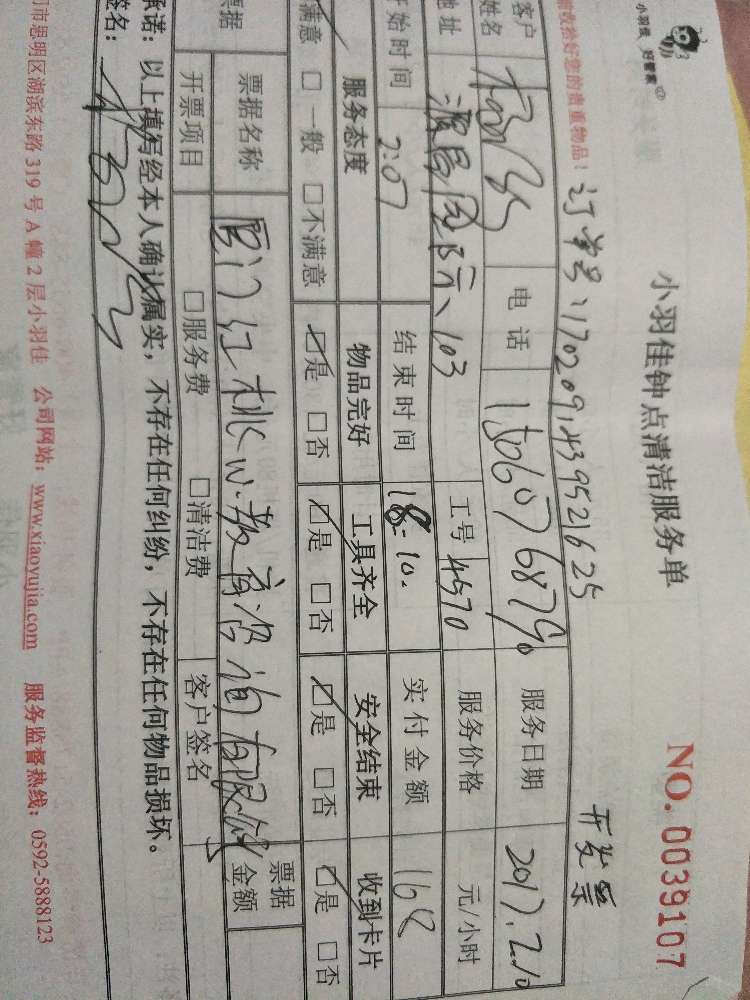 小羽佳 好管家
小羽佳钟点清洁服务单
NO. 0039107
收拾好您的贵重物品！
订单号：1702091439521625
开发票
客户姓名
电话
服务日期 2017.2.10
地址 源昌国际、103
工号 4570
服务价格 元/小时
开始时间 2:07
结束时间 18:10.
实付金额 168
服务态度 物品完好 工具齐全 安全结束 收到卡片
满意 □一般 □不满意 ☑是 □否 ☑是 □否 ☑是 □否 ☑是 □否
票据
票据名称 厦门红桃心教育咨询有限公司
票据金额
开票项目 □服务费 □清洁费
客户签名
承诺：以上填写经本人确认属实，不存在任何纠纷，不存在任何物品损坏。
签名：
门市思明区湖滨东路 319 号 A 幢 2 层小羽佳 公司网站：www.xiaoyujia.com 服务监督热线：0592-5888123